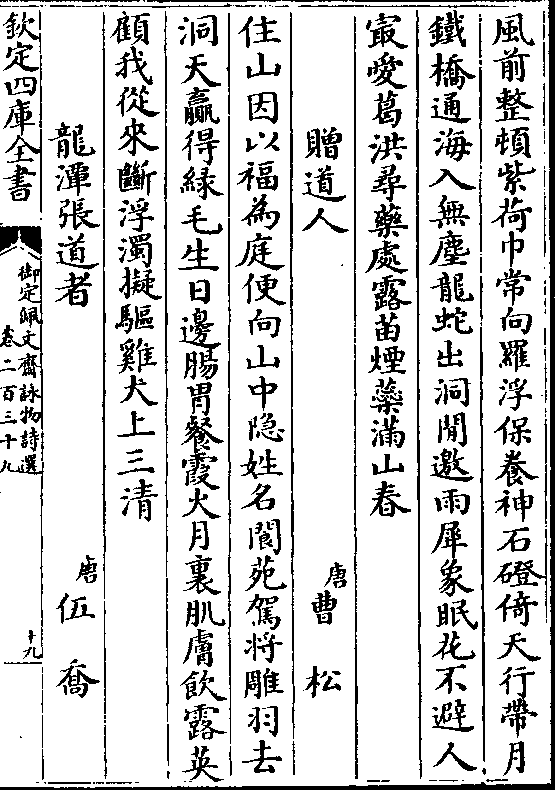 風前整頓紫荷巾常向羅浮保養神石磴倚天行帶月
鐵橋通海入無塵龍蛇出洞閒邀雨犀象眠花不避人
最愛葛洪尋藥處露苗煙蘂滿山春
贈道人 唐 曹 松
住山因以福為庭便向山中隠姓名閬苑駕将雕羽去
洞天贏得緑毛生日邊腸胃餐霞火月裏肌膚飲露英
顧我從來斷浮濁擬驅雞犬上三清
龍潭張道者 唐 伍 喬
欽定四庫全書
御定佩文齋詠物詩選
卷二百三十九
十九